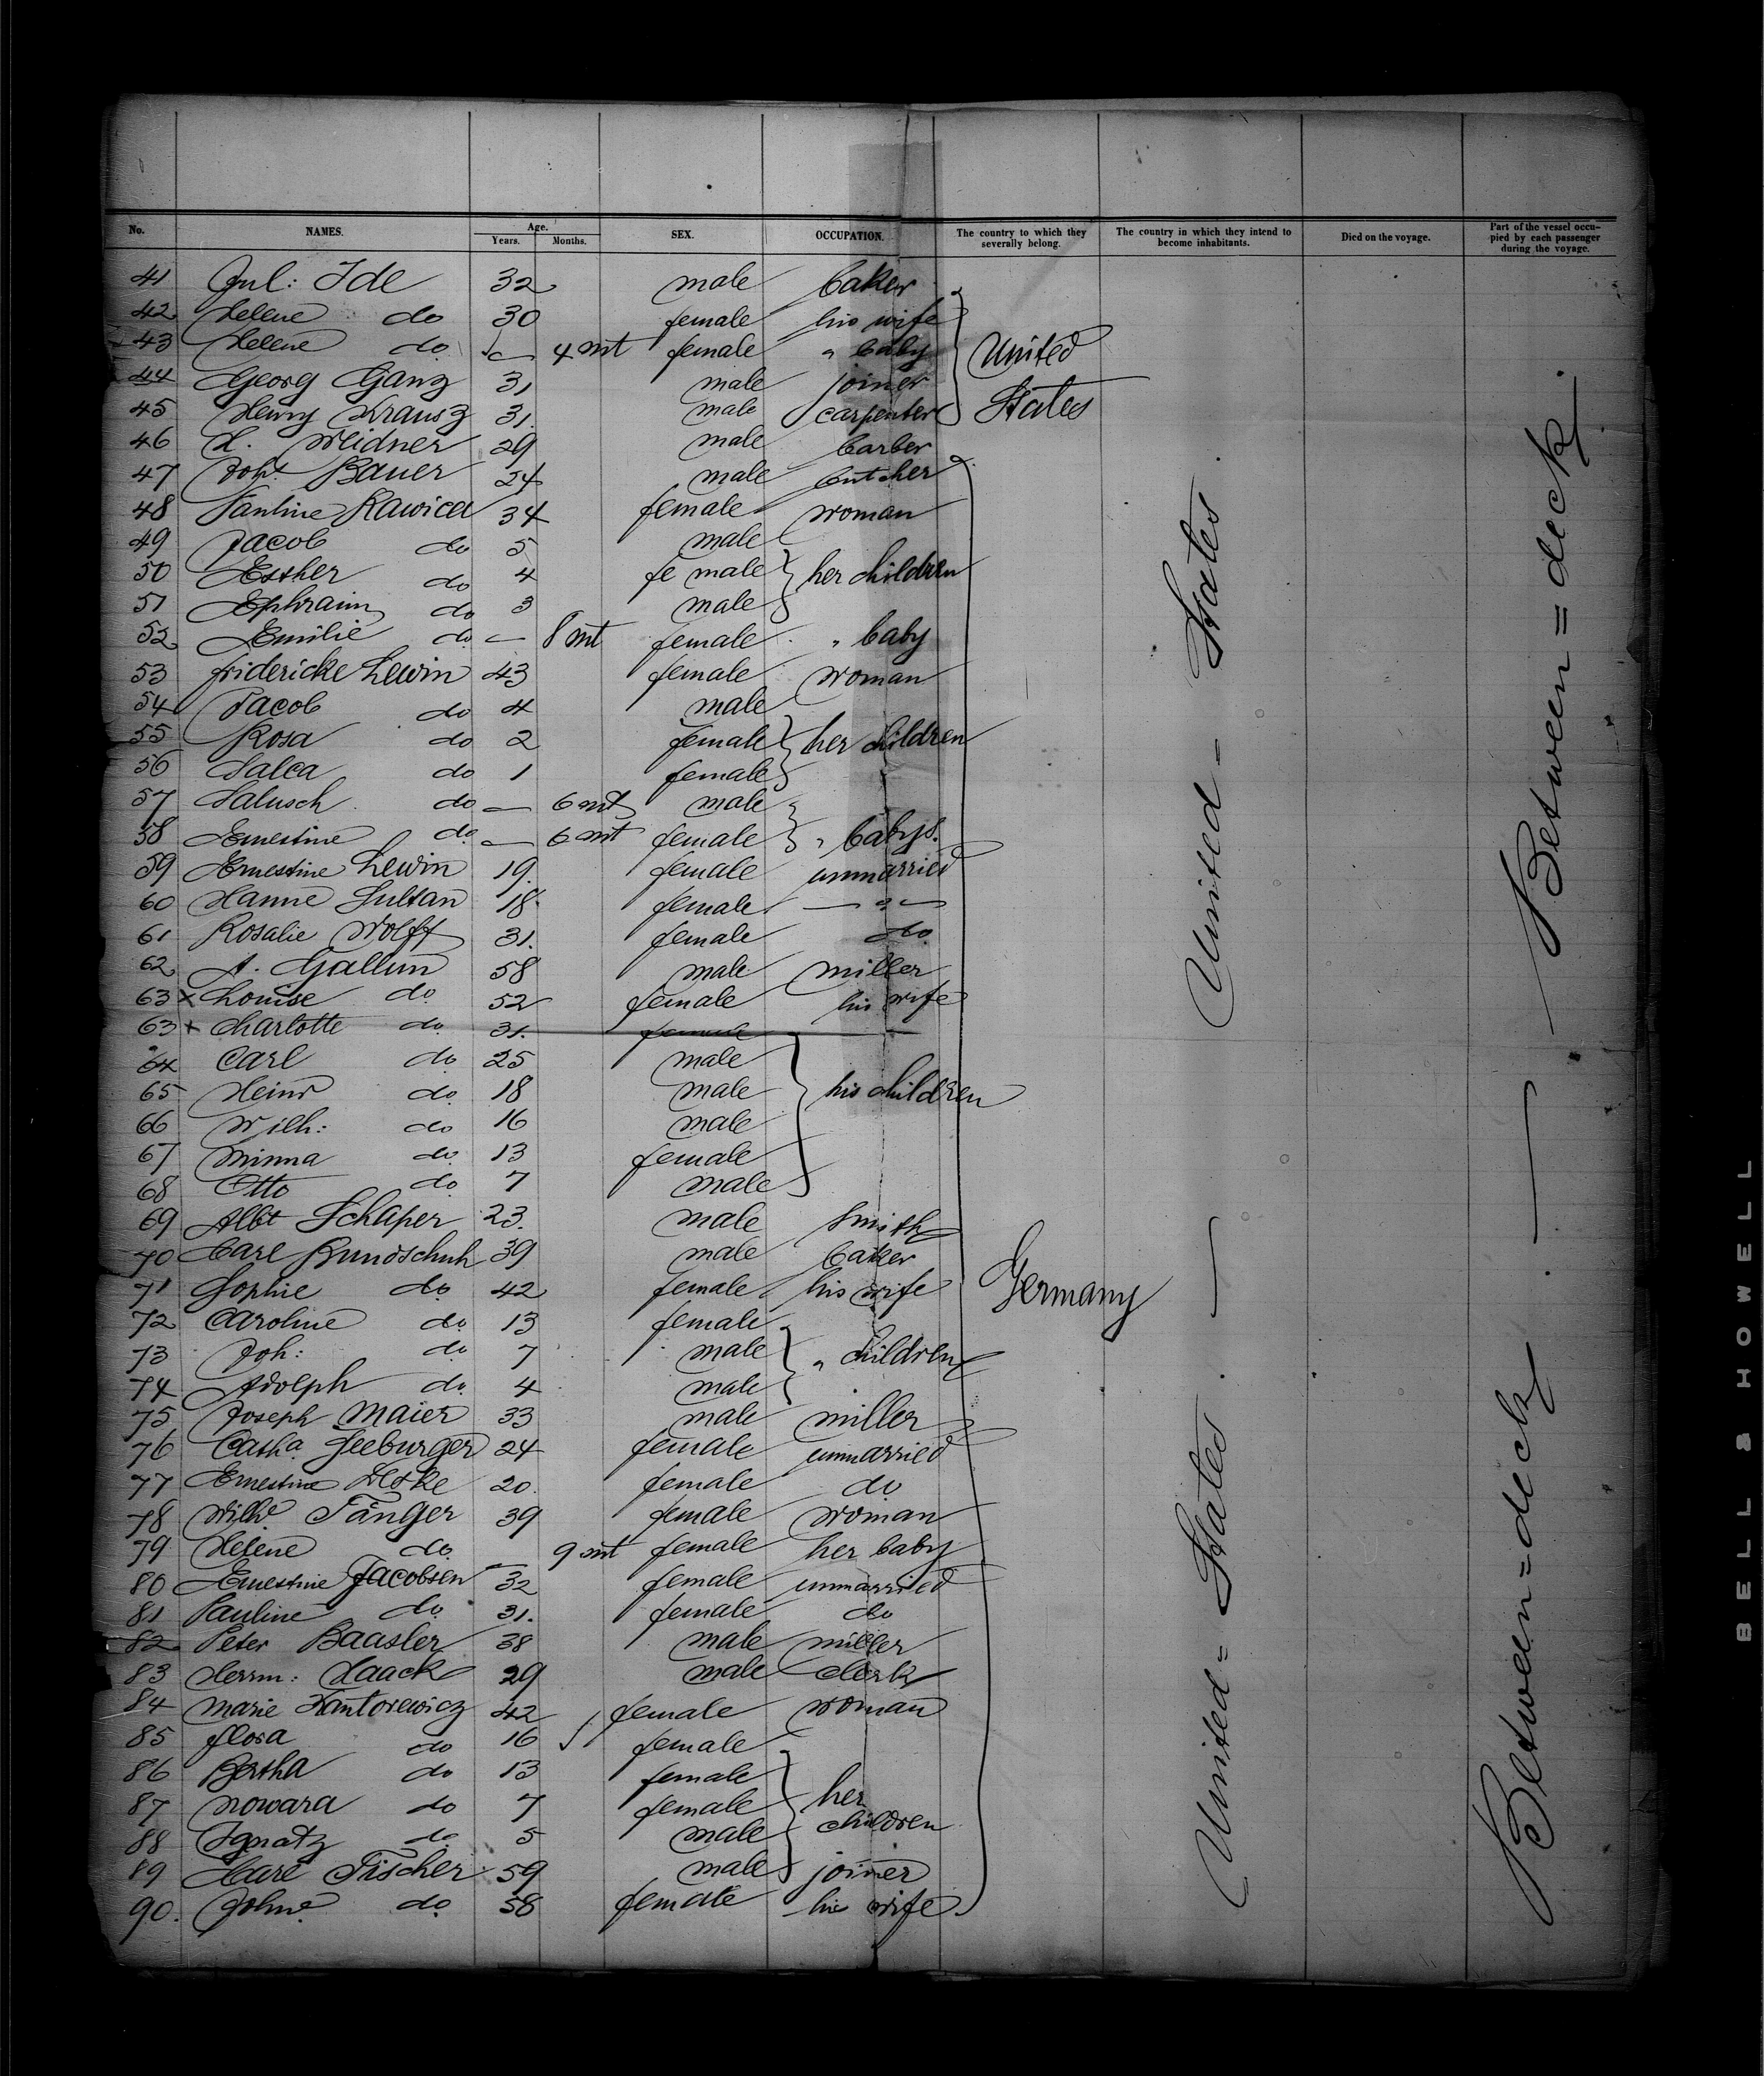 No. NAMES. Age. Years. Months. SEX. OCCUPATION. The country to which they severally belong. The country in which they intend to become inhabitants. Died on the voyage. Part of the vessel occu-pied by each passenger during the voyage.
41 Jul: Ide 32 male baker
42 Helene do 30 female his wife
43 Helene do. — 4 mt female " baby United
44 Georg Ganz 31 male joiner
45 Henry Krausz 31. male carpenter States
46 L. Weidner 29 male barber
47 Joh. Bauer 24 male butcher
48 Pauline Rawicz 34 female woman
49 Jacob do 5 male
50 Esther do 4 fe male her children
51 Ephraim do 3 male
52 Emilie do. — 8 mt female " baby
53 Fridericke Lewin 43 female woman
54 Jacob do 4 male
55 Rosa do 2 female her children
56 Salca do 1 female
57 Salusch do — 6 mt male
58 Ernestine do. — 6 mt female " babys.
59 Ernestine Lewin 19. female unmarried
60 Hanne Sultan 18. female — " —
61 Rosalie Wolff 31. female do
62 A. Gallun 58 male miller
63 x Louise do. 52 female his wife
63 x Charlotte do. 31. female
64 Carl do 25 male
65 Heinr do. 18 male his children
66 Wilh: do 16 male
67 Minna do. 13 female
68 Otto do. 7 male
69 Albt Schaper 23. male Smith
70 Carl Rundschuh 39 male baker
71 Sophie do. 42 female his wife Germany
72 Caroline do. 13 female
73 Joh: do. 7 male " children
74 Adolph do. 4 male
75 Joseph Maier 33 male miller
76 Catha. Seeburger 24 female unmarried
77 Ernestine 20. female do
78 Wilhe Fänger 39 female woman
79 Helene do. 9 mt female her baby
80 Ernestine Jacobsen 32 female unmarried
81 Pauline do. 31. female do
82 Peter Baasler 38 male miller
83 Herrm: Haack 29 male clerk
84 Marie Kantorewicz 42 female woman
85 Flora do 16 female
86 Bertha do 13 female
87 Nowara do 7 female her
88 Ignatz do 5 male children
89 Carl Fischer 59 male joiner
90. Johne do. 58 female his wife
United = States —
United = States
— Between = deck —
Between = deck
BELL & HOWELL